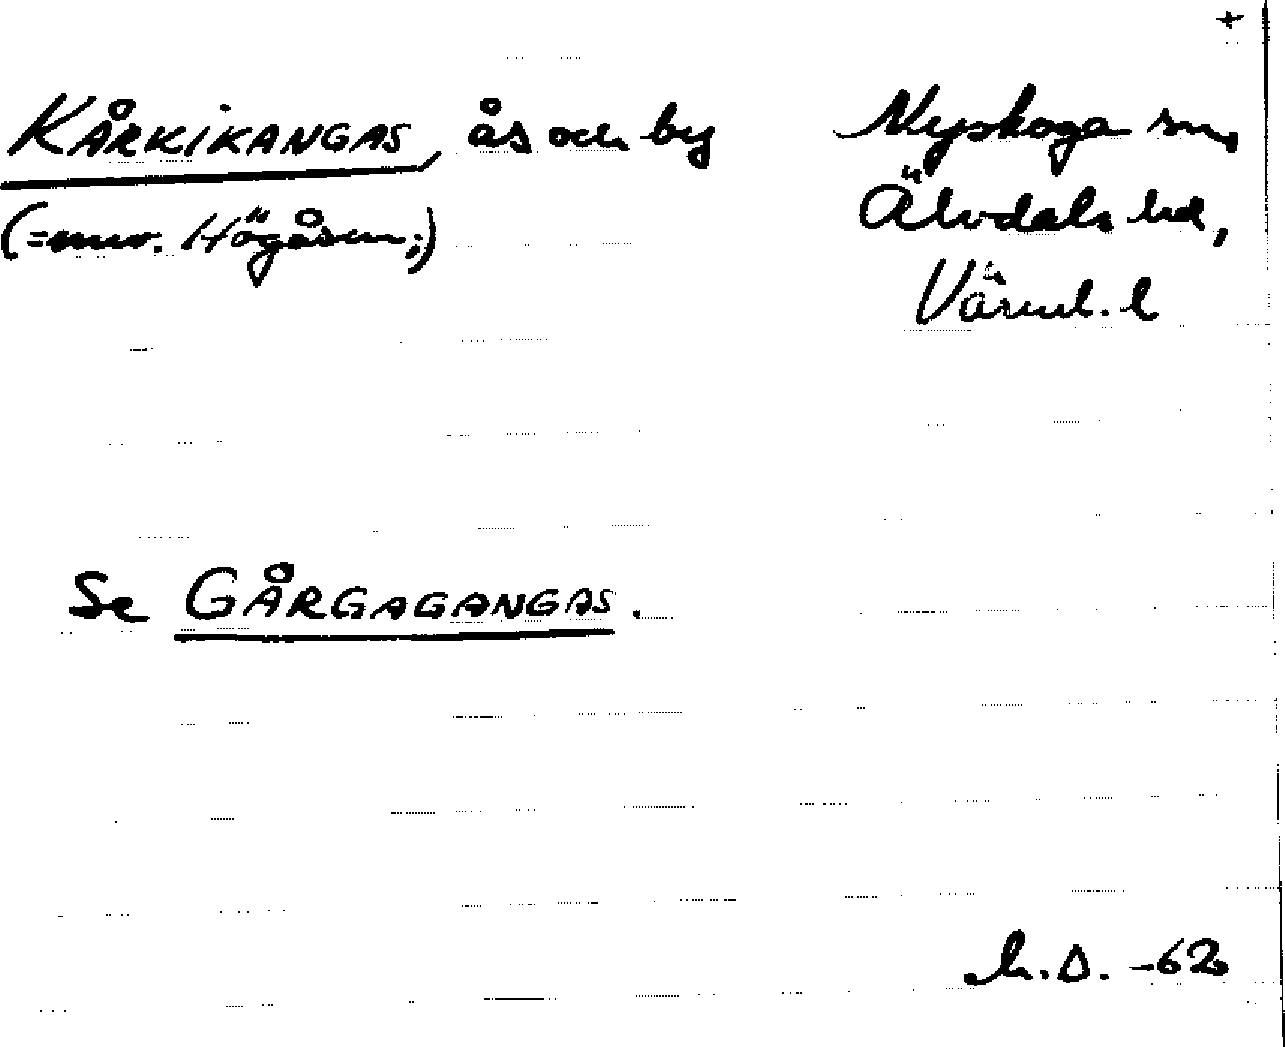 +
KÅRKIKANGAS, ås och by
Nyskoga sn,
(= nuv. Högåsen;)
Älvdals hd,
Värml. l
Se GÅRGAGANGAS.
-62